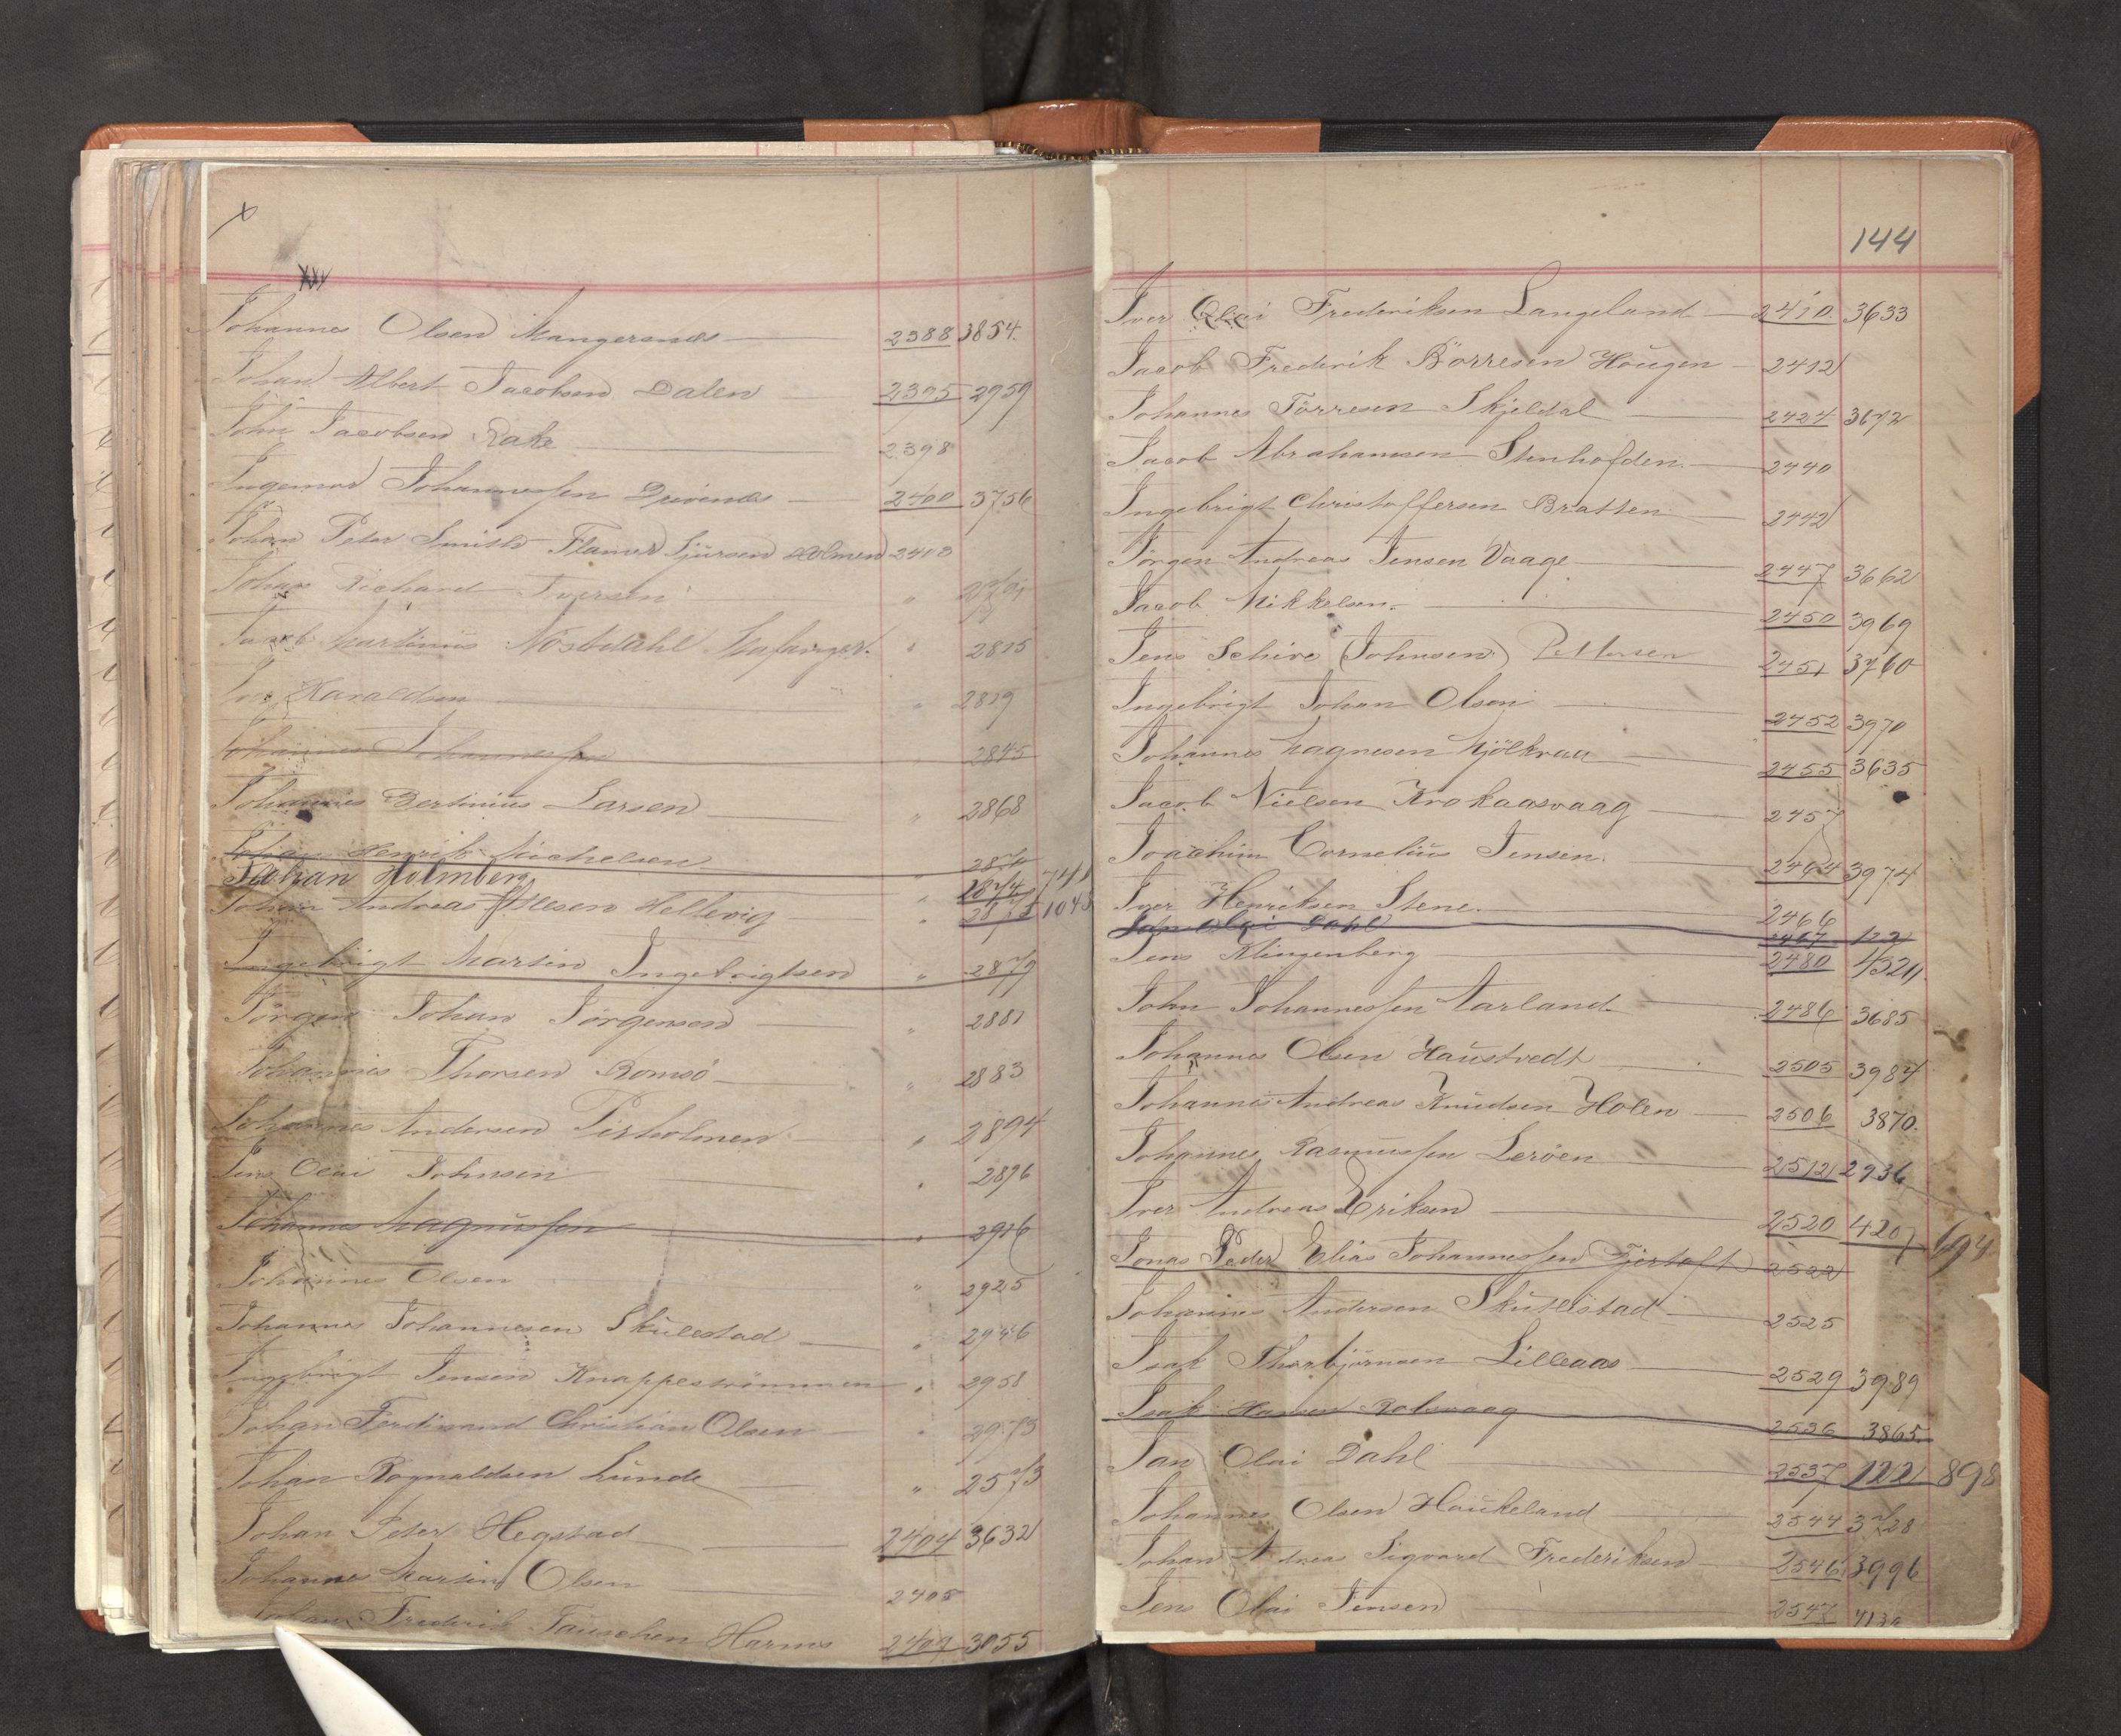 x
xxv
Johannes Olsen Mangersnes 2388 3854.
Johan Albert Jacobsen Dalen 2395 2959
John Jacobsen Rake 2398
Ingemar Johannessen Drivenes 2400 3756
Johan Peter Smith Flamer Sjursen Holmen 2403
Johan Richard Iversen "
Jacob Martinus Nöstdahl Stafanger. " 2815
Iver Haraldsen " 2819
Johannes Johannessen " 2845
Johannes Bertinius Larsen " 2868
Johan Henrik Michelsen " 2870
Johan Holmberg " 2874 741
Johan Andreas Olsen Hellevig " 2875 1048
Ingebrigt Martin Ingebrigtsen " 2879
Jörgen Johan Jörgensen " 2881
Johannes Thorsen Romsö " 2883
Johannes Andersen Pirholmen " 2894
Jens Olai Johnsen " 2896
Johannes Magnussen " 2916
Johannes Olsen " 2925
Johannes Johannesen Skulestad " 2946
Ingebrigt Jensen Knappeströmmen " 2958
Johan Ferdinand Christian Olsen " 2973
Johan Ragnvaldsen Lunde " 2573
Johan Peter Hegstad 2404 3632
Johannes Martin Olsen 2405
Johan Frederik Tauschen Harms 2407 3055
144
Iver Olai Frederiksen Langeland 2410. 3633
Jacob Frederik Börresen Hougen 2412
Johannes Törresen Skjeldal 2424 3672
Jacob Abrahamsen Stenhofden 2440
Ingebrigt Christoffersen Bratten 2442
Jörgen Andreas Jensen Vaage 2447 3662
Jacob Mikkelsen. 2450 3969
Jens Schive (Johnsen) Pettersen 2451 3760
Ingebrigt Johan Olsen 2452 3970
Johannes Magnesen Mjölkraa 2455 3635
Jacob Nielsen Krokaasvaag 2457
Joachim Cornelius Jensen. 2464 3974
Iver Henriksen Stene. 2466
Jan Olai Dahl 2467 122
Jens Klingenberg 2480 4320
John Johannessen Aarland. 2486 3685
Johannes Olsen Haustvedt 2505 3984
Johannes Andreas Knudsen Holen 2506 3870.
Johannes Rasmussen Leröen 2512 2936
Iver Andreas Eriksen 2520 4207 694
Jonas Peder Elias Johannessen Fjertoft 2522
Johannes Andersen Skutlestad 2525
Isak Thorbjörnsen Lilleaas 2529 3989
Isak Hansen Rotsvaag 2536 3865.
Jan Olai Dahl 2537 122 898
Johannes Olsen Haukeland 2544 3728
Johan Andreas Sigvard Frederiksen 2546 3996
Jens Olai Jensen 2547